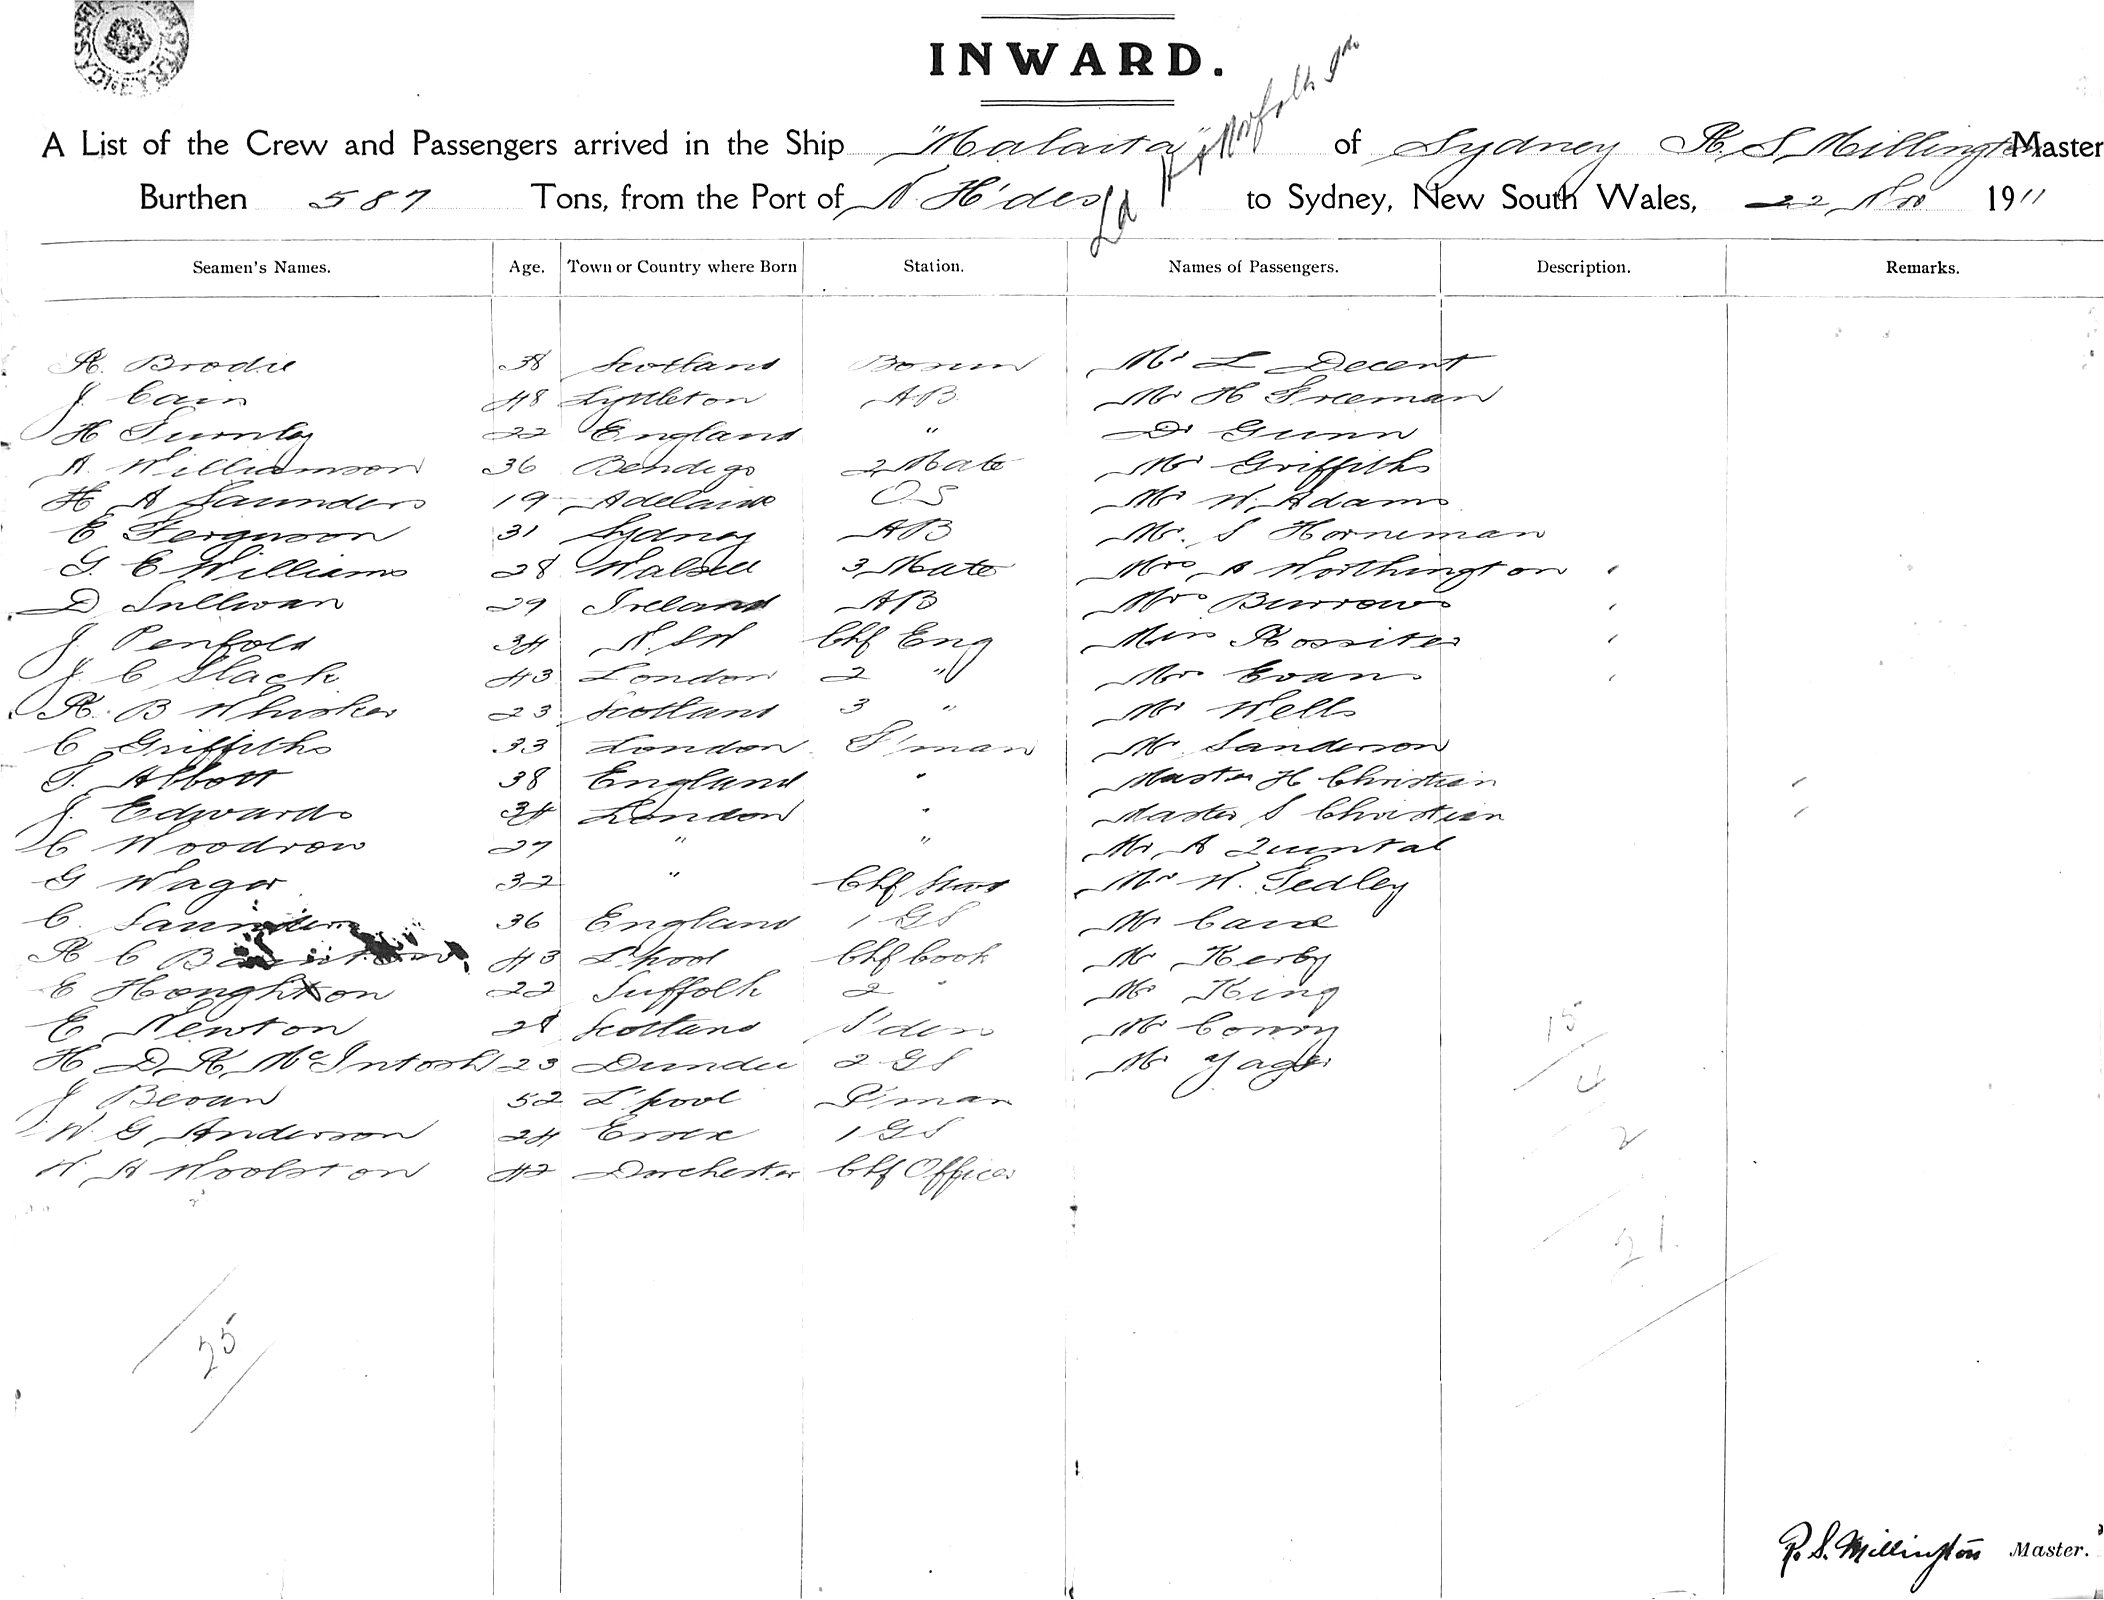 INWARD.
A List of the Crew and Passengers arrived in the Ship "Malaita" of Sydney R. S. Millington Master
Burthen 587 Tons, from the Port of N. H'des Ld H & Norfolk Is to Sydney, New South Wales, 22 Nov 1911
Seamen's Names. Age. Town or Country where Born Station. Names of Passengers. Description. Remarks.
R. Brodie 38 Scotland Bosun Mr L Decent
J. Cain 48 Lyttleton A.B. Mr H Freeman
H Turnley 22 England " Dr Gunn
A. Williamson 36 Bendigo 2 Mate Mr Griffiths
H A Saunders 19 Adelaide O.S Mr W. Adams
E Ferguson 31 Sydney AB Mr. S Horneman
G. E Williams 28 Walsall 3 Mate Mrs A Worthington
D Sullivan 29 Ireland AB Mrs Burrows
J. Penfold 34 N.S.W Chf Eng Miss Rossiter
J. C Slack 43 London 2 " Mrs Evans
R. B Whisker 23 Scotland 3 " Mr Wells
C Griffiths 33 London F'man Mr Sanderson
T. Abbott 38 England " Master H Christian
J. Edwards 34 London " Master S Christian
C Woodrow 27 " " Mr A Quintal
G Wager 32 " Chf Stwd Mr W. Tedley
C. Saunders 36 England 1 GS Mr Cane
R C 43 L'pool Chf Cook Mr Kerby
E Houghton 22 Suffolk 2 " Mr King
E Newton 28 Scotland S'dess Mr Conroy
H D R McIntosh 23 Dundee 2 GS Mr Yager
J Bevan 52 L'pool P'man
W. G Anderson 24 Essex 1 GS
W. A Woolston 42 Dorchester Chf Officer
15
4
2
21
25
R. S. Millington Master.